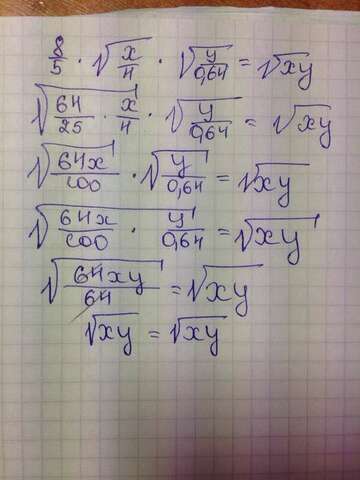 8/5 · √(x/4) · √(y/0,64) = √xy
√(64/25 · x/4) · √(y/0,64) = √xy
√(64x/100) · √(y/0,64) = √xy
√(64x/100 · y/0,64) = √xy
√(64xy/64) = √xy
√xy = √xy